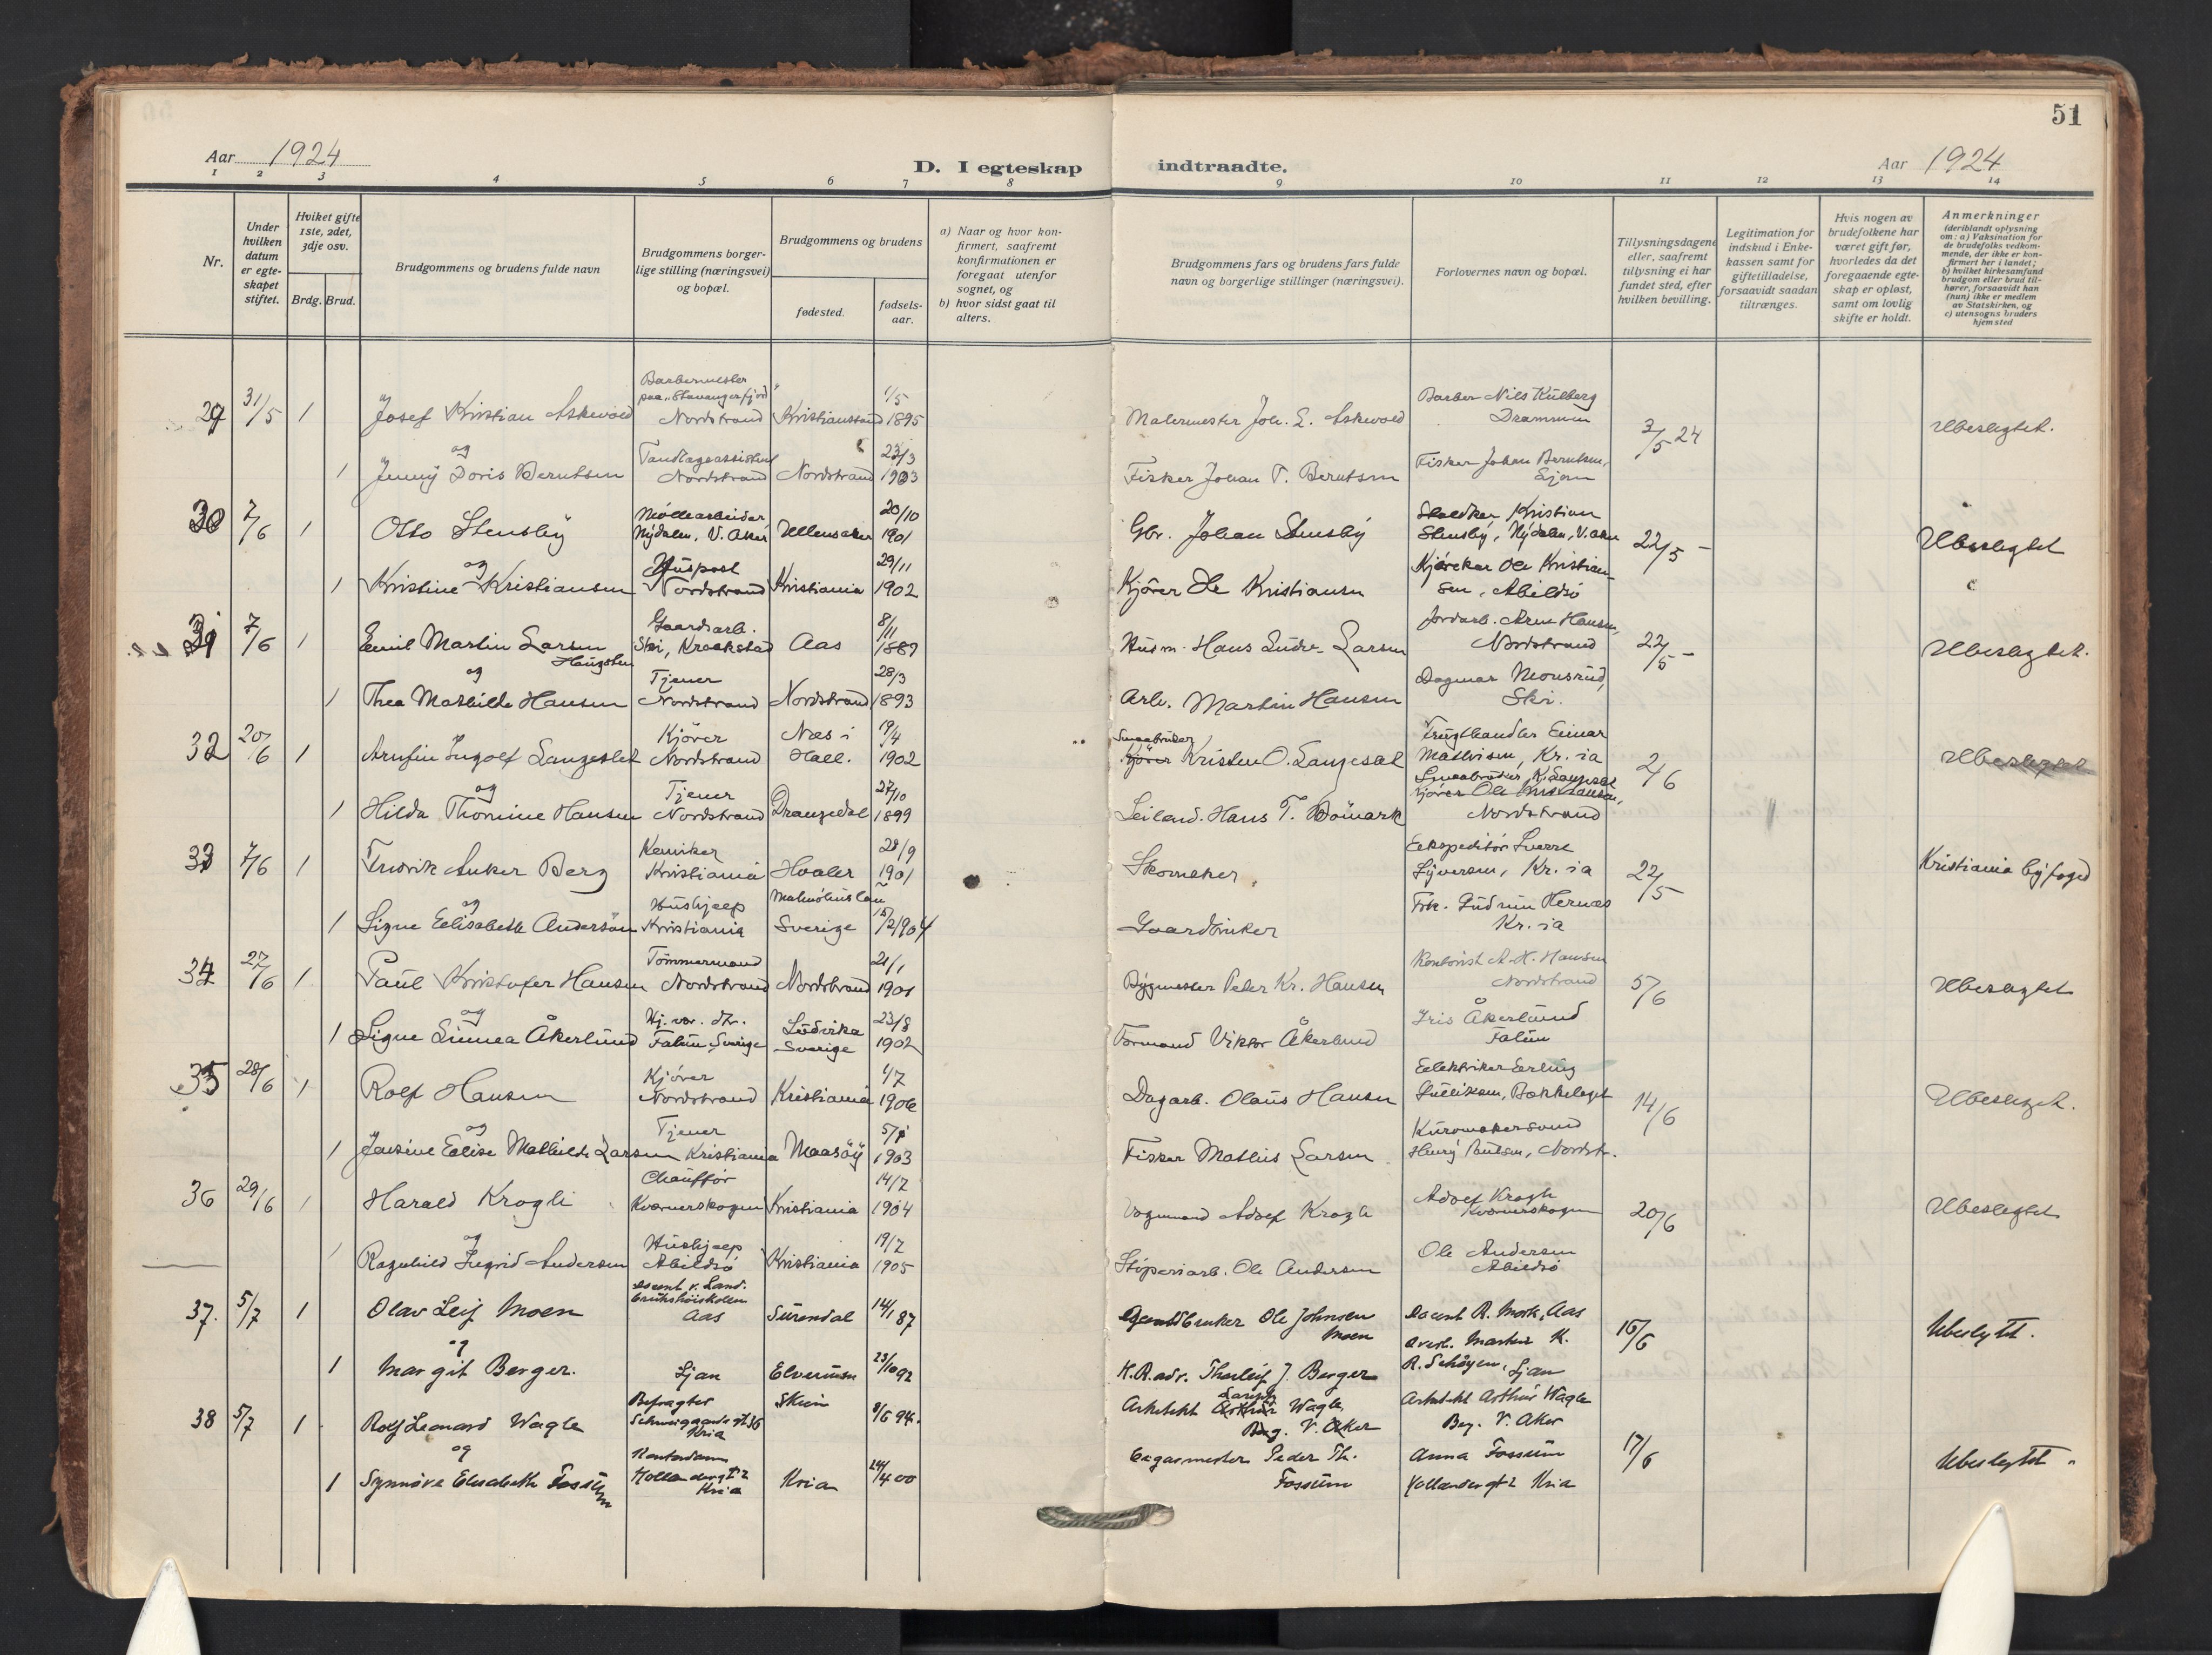 51
Aar 1924
D. I egteskap indtraadte.
Aar 1924
1 2 3 4 5 6 7 8 9 10 11 12 13 14
Nr.
Under hvilken datum er egteskapet stiftet.
Hviket gifte 1ste, 2det, 3dje osv.
Brdg. Brud.
Brudgommens og brudens fulde navn
Brudgommens borgerlige stilling (næringsvei) og bopæl.
Brudgommens og brudens
fødested.
fødselsaar.
a) Naar og hvor konfirmert, saafremt konfirmationen er foregaat utenfor sognet, og
b) hvor sidst gaat til alters.
Brudgommens fars og brudens fars fulde navn og borgerlige stillinger (næringsvei).
Forlovernes navn og bopæl.
Tillysningsdagene eller, saafremt tillysning ei har fundet sted, efter hvilken bevilling.
Legitimation for indskud i Enkekassen samt for giftetilladelse, forsaavidt saadan tiltrænges.
Hvis nogen av brudefolkene har været gift før, hvorledes da det foregaaende egteskap er opløst, samt om lovlig skifte er holdt.
Anmerkninger (deriblandt oplysning om: a) Vaksination for de brudefolks vedkommende, der ikke er konfirmert her i landet; b) hvilket kirkesamfund brudgom eller brud tilhører, forsaavidt han (hun) ikke er medlem av Statskirken, og c) utensogns bruders hjemsted
29 31/5 1 Josef Kristian Askevold Barbermester paa "Stavangerfjord" Nordstrand Kristianssund 1/5 1895 Malermester Joh. E. Askevold Barber Nils Kulberg Drammen 3/5 24 Ubeslegtet.
og
1 Jenny Doris Berntsen Tandlægeassistent Nordstrand Nordstrand 23/3 1903 Fisker Johan T. Berntsen Fisker Johan Berntsen,
30 7/6 1 Otto Stensby Møllearbeider, Nydalen, V. Aker Ullensaker 20/10 1901 Gbr. Johan Stensby Kristian Stensby, Nydalen, V. Aker 22/5 - Ubeslegtet
og
1 Kristine Kristiansen Huspost Nordstrand Kristiania 29/11 1902 Kjører Ole Kristiansen Ole Kristiansen, Abildsø
31 7/6 1 Emil Martin Larsen Haugsten Gaardsarb. Ski, Kraakstad Aas 8/11 1887 Husm. Hans Ludv. Larsen Jordarb. Arne Hansen, Nordstrand 22/5 - Ubeslegtet.
og
1 Thea Mathilde Hansen Tjener Nordstrand Nordstrand 28/3 1893 Arb. Martin Hansen Dagmar Monsrud, Ski.
32 20/6 1 Arnfin Ingolf Langeslet Kjører Nordstrand Næs i Hall. 19/4 1902 Smaabruker Kjører Kristen O. Langesæt Frugthandler Einar Mathisen, Kr.ia 2/6 Ubeslegtet
og
1 Hilda Thomine Hansen Tjener Nordstrand Drangedal 27/10 1899 Leilend. Hans T. Bømark Smaabruker K. Langesæt Kjører Ole Kristiansen, Nordstrand
33 7/6 1 Fredrik Anker Berg Kemiker Kristiania Hvaler 28/9 1901 Skomaker Ekspeditør Sverre Syversen, Kr.ia 22/5 Kristiania byfoged
og
1 Signe Elisabeth Andersön Hushjelp Kristiania Malmöhus Län Sverige 15/2 1904 Gaardbruker Frk. Gudrun Hernæs Kr.ia
34 27/6 1 Paul Kristofer Hansen Tømmermand Nordstrand Nordstrand 21/1 1901 Bygmester Peder Kr. Hansen Kontorist A. H. Hansen Nordstrand 5/6 Ubeslegtet
og
1 Signe Linnea Åkerlund Hj.vær. dtr. Falun Sverige Ludvika Sverige 23/8 1902 Formand Viktor Åkerlund Iris Åkerlund Falun
35 28/6 1 Rolf Hansen Kjører Nordstrand Kristiania 4/7 1906 Dagarb. Olaus Hansen Elektriker Erling Gulliksen, Bækkelaget 14/6 Ubeslegtet.
og
1 Jensine Elise Mathilde Larsen Tjener Kristiania Maasöy 5/1 1903 Fisker Mathis Larsen Kurvmakersvend Henry Paulsen, Nordst.
36 29/6 1 Harald Krogh Chauffør Kværnerskogen Kristiania 14/7 1904 Vognmand Adolf Krogh Adolf Krogh Kværnerskogen 20/6 Ubeslegtet
og
1 Ragnhild Ingrid Andersen Hushjelp Abildsø Kristiania 19/7 1905 Støperiarb. Ole Andersen Ole Andersen Abildsø
37. 5/7 1 Olav Leif Moen Docent v. Landbrukshøiskolen Aas Surendal 14/1 87 Gaardbruker Ole Johnsen Moen Docent R. Mork, Aas 16/6 Ubeslegtet.
og
1 Margit Berger. Ljan Elverum 23/10 92 H.R.adv. Thorleif J. Berger Overl. Martin K. R. Schøyen, Ljan
38 5/7 1 Rolf Leonard Wagle Befragter Schweigaards gt. 36 Kria Skien 8/6 94. Arkitekt Arthur Wagle, V. Aker Arkitekt Arthur Wagle V. Aker 17/6 Ubeslegtet.
og
1 Synnøve Elisabeth Fossum Kontordame Hollendergt 2 Kria Kria 24/4 00 Gasmester Peder Th. Fossum Anna Fossum Hollendergt 2 Kria